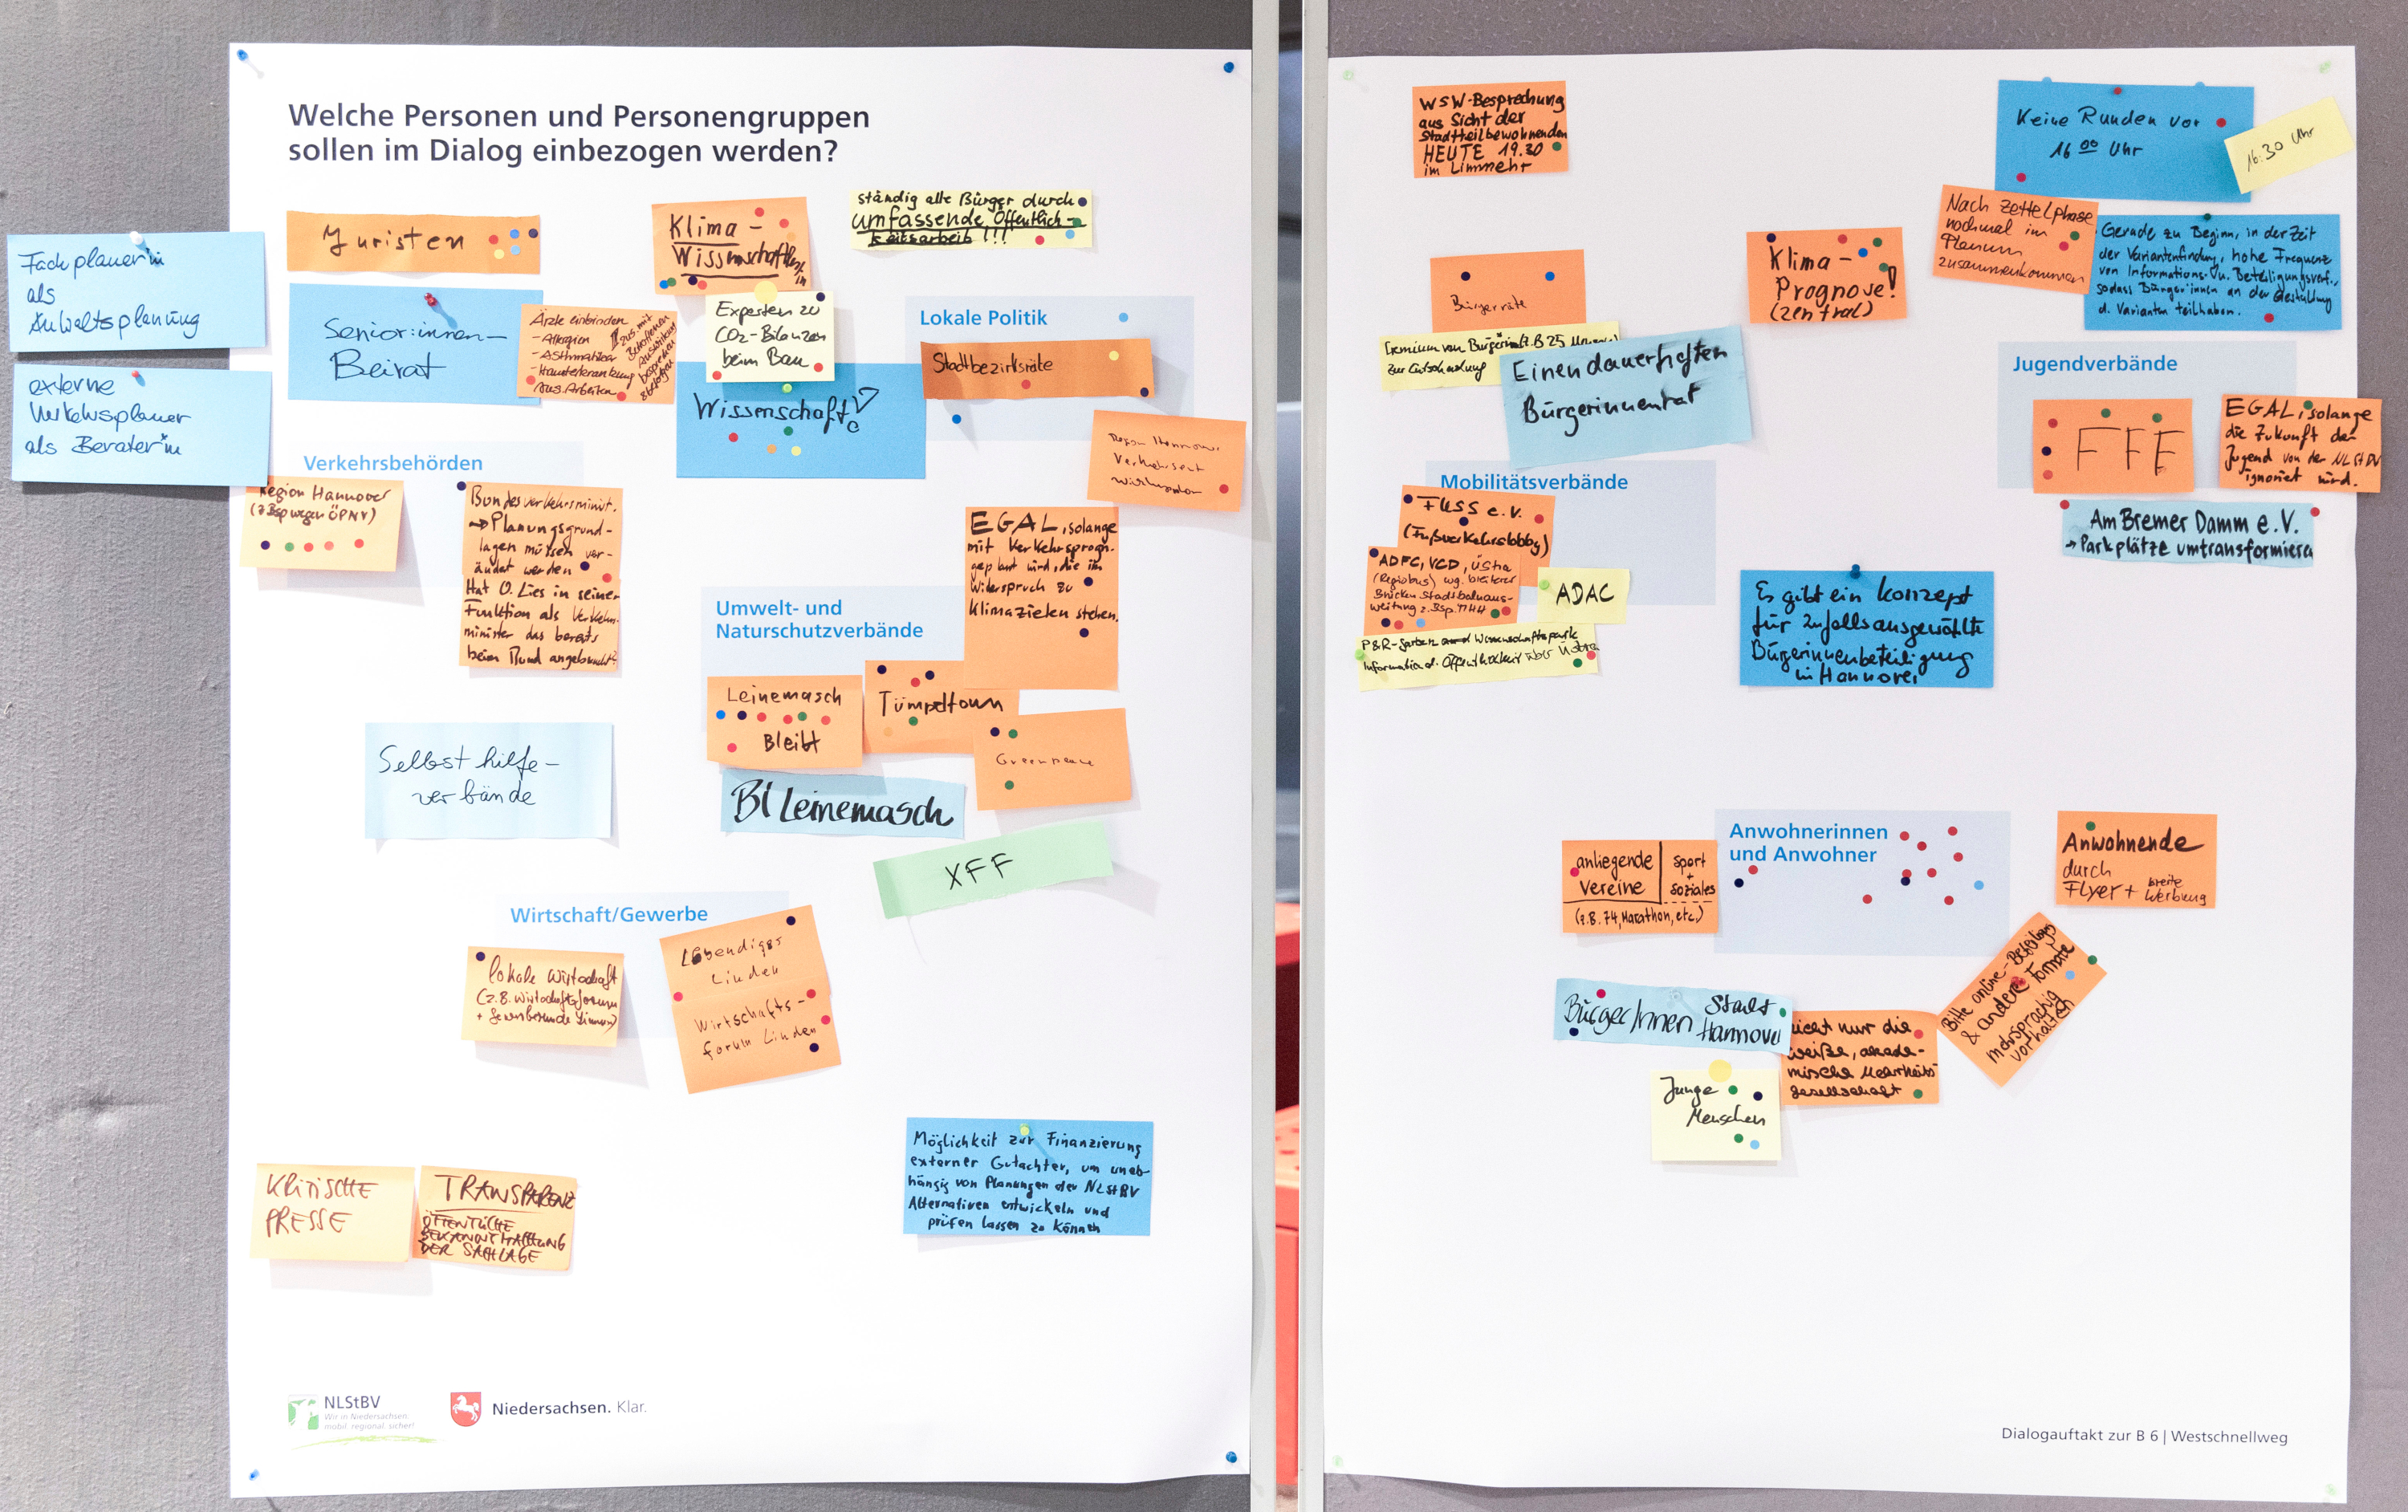 Welche Personen und Personengruppen
sollen im Dialog einbezogen werden?
Fachplaner*in
als
Anwaltsplanung
externe
Verkehrsplaner
als Berater*in
Juristen
Senior:innen-
Beirat
Ärzte einbinden
- Allergien
- Asthmatiker
- Hauterkrankung
Klima-
Wissenschaftler/
in
ständig alle Bürger durch
umfassende Öffentlich-
keitsarbeit !!!
Experten zu
CO2-Bilanzen
beim Bau
Wissenschaft
Lokale Politik
Stadtbezirksräte
Verkehrsbehörden
Region Hannover
(z.Bsp wegen ÖPNV)
Bundesverkehrsminist.
→ Planungsgrund-
lagen müssen ver-
ändert werden
Hat O. Lies in seiner
Funktion als Verkehrs-
minister das bereits
beim Bund angebracht?
Umwelt- und
Naturschutzverbände
EGAL, solange
mit Verkehrsprogn.
geplant wird, die im
Widerspruch zu
Klimazielen stehen.
Leinemasch
Bleibt
Tümpeltown
Greenpeace
BI Leinemasch
XFF
Selbsthilfe-
verbände
Wirtschaft/Gewerbe
lokale Wirtschaft
(z.B. Wirtschaftsforum
Lebendiges
Linden
Wirtschafts-
forum Linden
KRITISCHE
PRESSE
TRANSPARENZ
ÖFFENTLICHE
BEKANNTMACHUNG
DER SACHLAGE
Möglichkeit zur Finanzierung
externer Gutachter, um unab-
hängig von Planungen der NLStBV
Alternativen entwickeln und
prüfen lassen zu können
NLStBV
Wir in Niedersachsen.
mobil. regional. sicher!
Niedersachsen. Klar.
WSW-Besprechung
aus Sicht der
Stadtteilbewohnenden
HEUTE 19.30
im Limmert
Keine Runden vor
16 00 Uhr
16:30 Uhr
Nach Zettelphase
nochmal im
Plenum
zusammenkommen
Gerade zu Beginn, in der Zeit
der Variantenfindung, hohe Frequenz
von Informations- u. Beteiligungsverf.,
sodass Bürger:innen an der Gestaltung
d. Varianten teilhaben.
Bürgerräte
Klima-
Prognose!
(zentral)
Gremium von Bürger*in
zur Entscheidung
Einen dauerhaften
Bürgerinnenrat
Jugendverbände
FFF
EGAL, solange
die Zukunft der
Jugend von der NLStBV
ignoriert wird.
Am Bremer Damm e.V.
→ Parkplätze umtransformieren
Mobilitätsverbände
FUSS e.V.
(Fußverkehrslobby)
ADFC, VCD, Üstra
(Regiobus) wg. breiterer
Brücken Stadtbahnaus-
weitung z.Bsp. MHH
ADAC
Es gibt ein Konzept
für zufallsausgewählte
Bürgerinnenbeteiligung
in Hannover
Anwohnerinnen
und Anwohner
anliegende
Vereine
Sport
+
Soziales
(z.B. 74, Marathon, etc.)
Anwohnende
durch
Flyer + breite
Werbung
Bitte online-Beteiligg
& andere Formate
mehrsprachig
vorhalten
BürgerInnen Stadt
Hannover
nicht nur die
weiße, akade-
mische Mehrheits-
gesellschaft
Junge
Menschen
Dialogauftakt zur B 6 | Westschnellweg